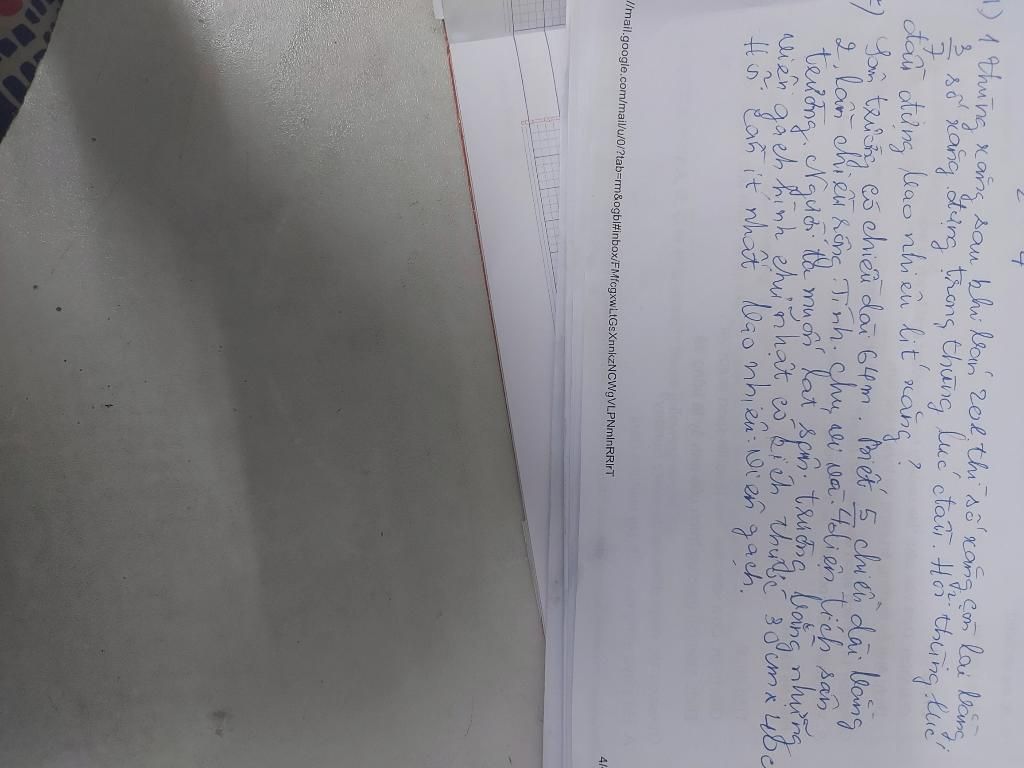 2 4
1) 1 thùng xăng sau khi bán 20l thì số xăng còn lại bằng
3/7 số xăng đựng trong thùng lúc đầu. Hỏi thùng lúc
đầu đựng bao nhiêu lít xăng?
) Sân trường có chiều dài 64m. Biết 5 chiều dài bằng
2 lần chiều rộng. Tính chu vi và diện tích sân
trường. Người ta muốn lát sân trường bằng những
viên gạch hình chữ nhật có kích thước 30cm x 40c
Hỏi cần ít nhất bao nhiêu viên gạch.
//mail.google.com/mail/u/0/?tab=rm&ogbl#inbox/FMfcgxwLtGsXnnkzNCWgVLPNmlnRRlrT
4/